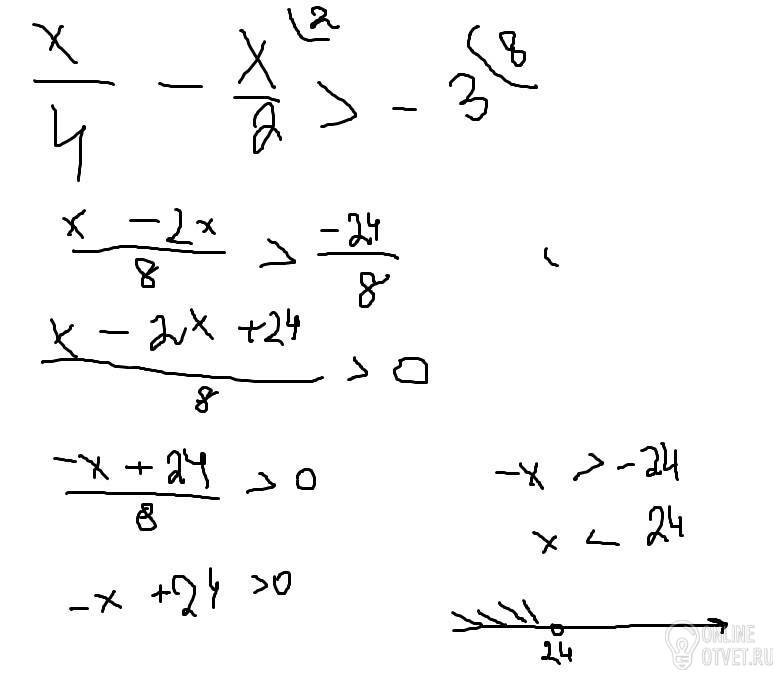 x/4 - x/2 (2 > -3 (8
x - 2x / 8 > -24 / 8
x - 2x + 24 / 8 > 0
-x + 24 / 8 > 0
-x + 24 > 0
-x > -24
x < 24
24
ONLINE
OTVET.RU